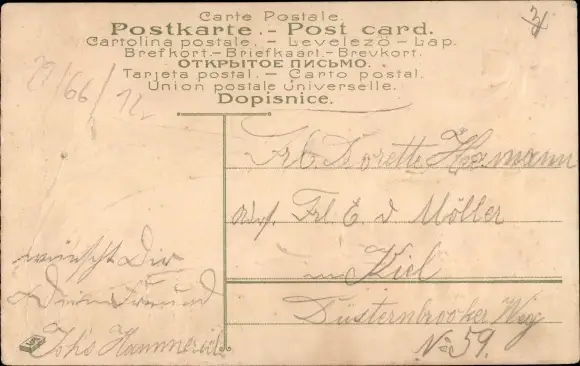 Carte Postale.
Postkarte. - Post card.
Cartolina postale. - Levelező - Lap.
Brefkort. - Briefkaart - Brevkort.
ОТКРЫТОЕ ПИСЬМО.
Tarjeta postal. - Carto postal.
Union postale universelle.
Dopisnice.
29/66/12
Frl. Dorette Hamann
Adr. Frl E. v Möller
in Kiel
Düsternbrooker Weg
No 59.
wünscht Dir
Dein Freund
Johs